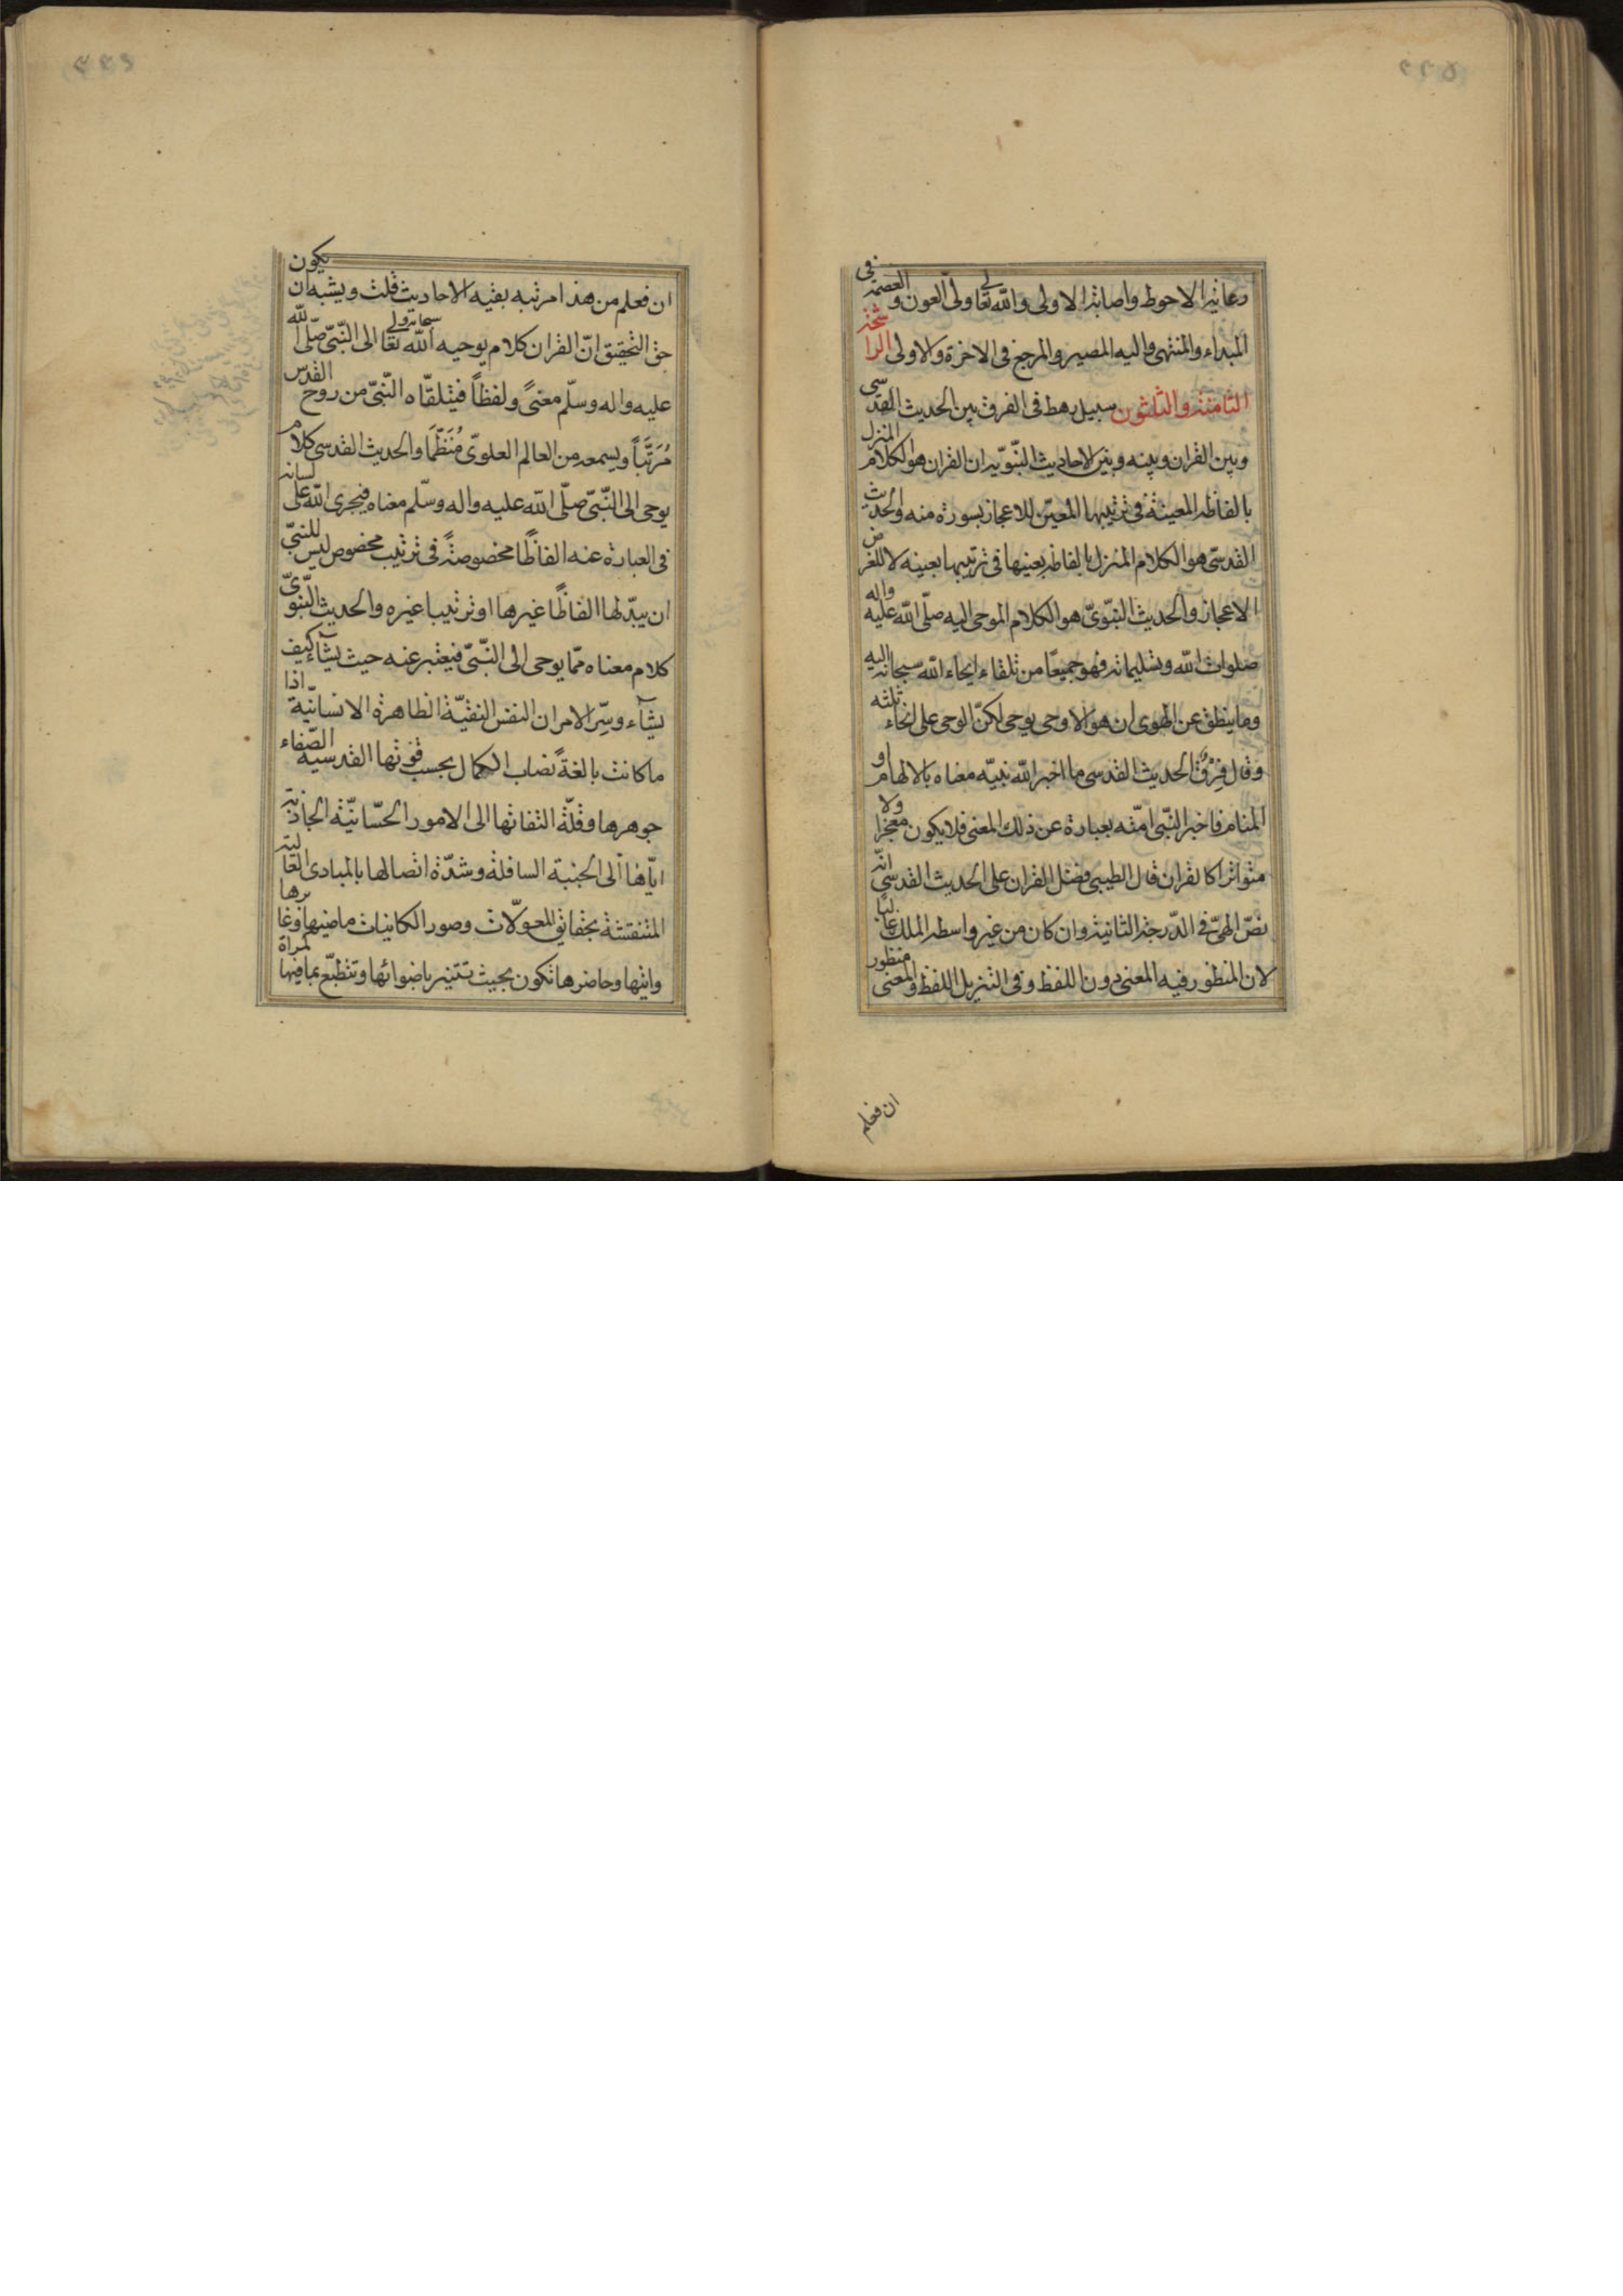 ٢٢٥
رعاية الاحوط واصابة الاولى والله تعالى ولى العون والعصمة فى
المبداء والمنتهى واليه المصير والمرجع فى الاخرة والاولى الراشحة
الثامنة والثلثون سبيل رهط فى الفرق بين الحديث القدسى
وبين القران وبينه وبين الاحاديث النبوية ان القران هو الكلام المنزل
بالفاظه المعينة فى ترتيبها المعيّن للاعجاز بسورة منه والحديث
القدسىّ هو الكلام المنزل بالفاظ بعينها فى ترتيبها بعينه لا لغرض
الاعجاز والحديث النبّوىّ هو الكلام الموحى اليه صلّى الله عليه واله
صلوات الله وتسليماته فهو جميعًا من تلقاء ايحاء الله سبحانه اليه
وما ينطق عن الهوى ان هو الا وحى يوحى لكنّ الوحى على انحاء ثلثه
وقال فرق الحديث القدسى ما اخبر الله نبيّه معناه بالالهام او
المنام فاخبر النّبى امّته بعبارة عن ذلك المعنى فلا يكون معجزا ولا
متواترا كالقران قال الطيبى فضل القران على الحديث القدسى انّه
نصّ الهىّ فى الدّرجة الثانية وان كان من غير واسطه الملك غالبًا
لان المنظور فيه المعنى دون اللفظ وفى التنزيل اللفظ والمعنى منظور
ان فعلم
ان فعلم من هذا مرتبه بقيه الاحاديث قلت ويشبه ان يكون
حق التحقيق انّ القران كلام يوحيه الله سبحانه وتعالى الى النّبىّ صلّى الله
عليه واله وسلّم معنىً ولفظاً فيتلقّاه النّبىّ من روح القدس
مُرَتَّباً ويسمعه من العالم العلوىّ مُنَظَّمَا والحديث القدسى كلام
يوحى الى النّبىّ صلّى الله عليه واله وسلّم معناه فيجرى الله على لسانه
فى العبارة عنه الفاظًا مخصوصةً فى ترتيب مخصوص ليس للنبىّ
ان يبدّلها الفاظًا غيرها او ترتيبا غيره والحديث النّبوىّ
كلام معناه ممّا يوحى الى النّبىّ فيعتبر عنه حيث يشاء كيف
يشآء وسرّ الامر ان النفس النقيّة الطاهرة الانسانيّة اذا
ما كانت بالغةً نصاب الكمال بحسب قوتها القدسيه الصّفاء
جوهرها وقلّة التفاتها الى الامور الحسّانيّة الجاذبة
ايّاها الى الجنبة السافلة وشدّة اتصالها بالمبادى العالية
المتنقشة بحقايق المعولات وصور الكاينات ماضيها وغابرها
واتيها وحاضرها تكون بحيث تتنير باضوائها وتنطبّع بما فيها كمراة